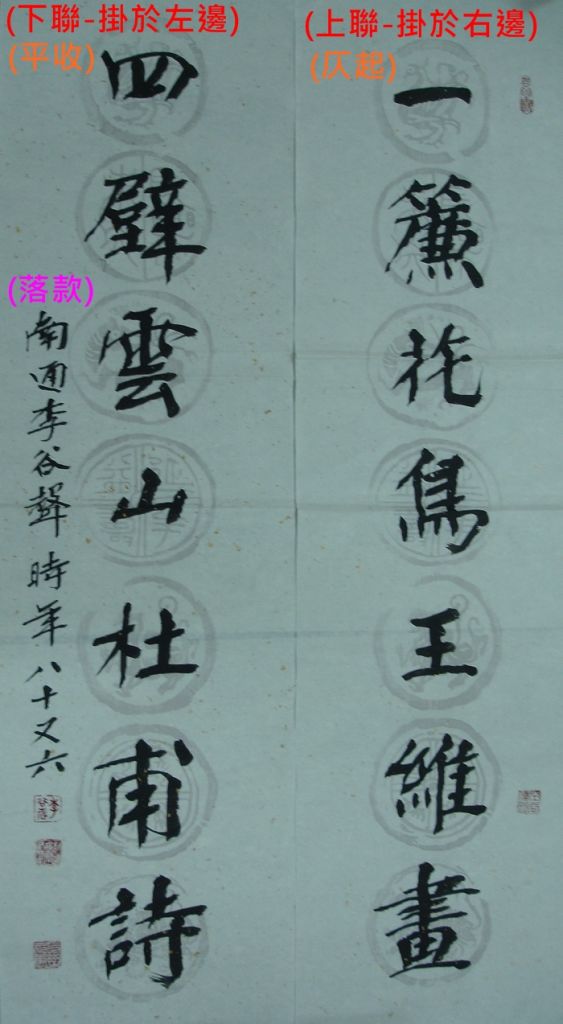 (上聯-掛於右邊)
(仄起)
一簾花鳥王維畫
(下聯-掛於左邊)
(平收)
四壁雲山杜甫詩
(落款)
南通李谷聲 時年八十又六